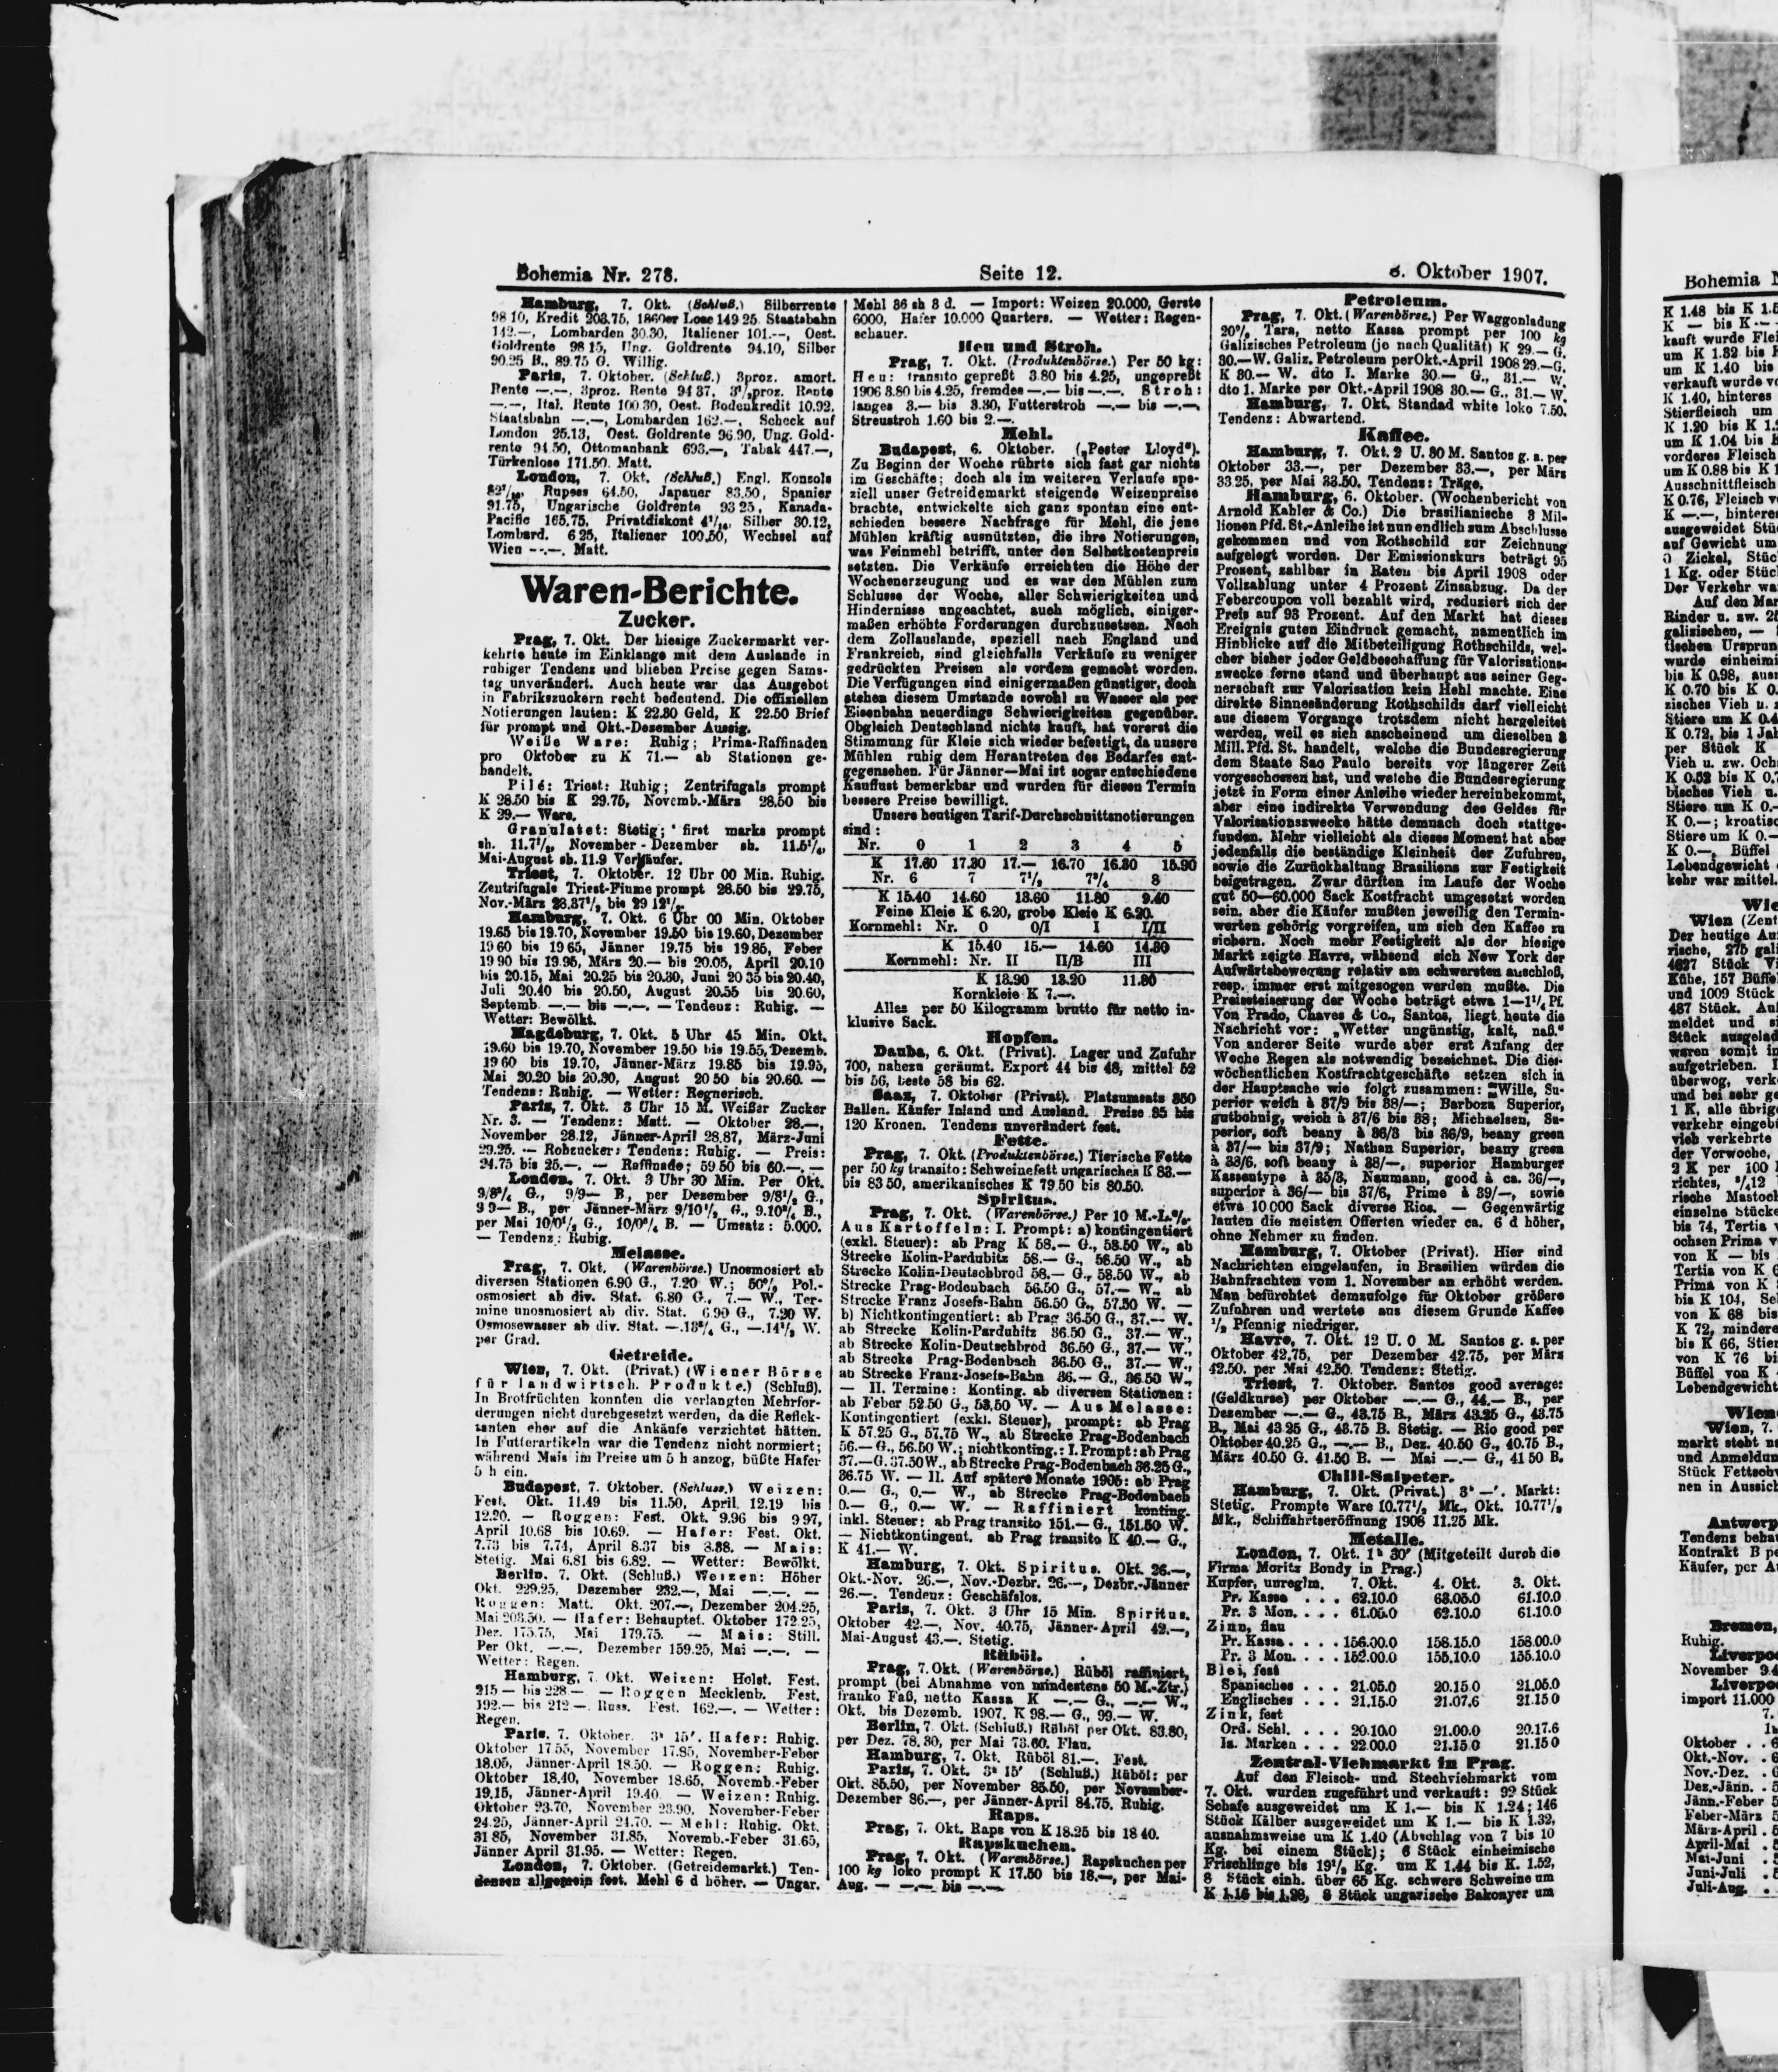 Bohemia Nr. 278.
Seite 12.
8. Oktober 1907.
Hamburg, 7. Okt. (Schluß.) Silberrente
98 10, Kredit 203.75, 1860er Lose 149 25. Staatsbahn
142.—, Lombarden 30.30, Italiener 101.—, Oest.
Goldrente 98 15, Ung. Goldrente 94.10, Silber
90.25 B., 89.75 G. Willig.
Paris, 7. Oktober. (Schluß.) 3proz. amort.
Rente —.—, 3proz. Rente 94 37, 3½proz. Rente
—.—, Ital. Rente 100 30, Oest. Bodenkredit 10.92.
Staatsbahn —.—, Lombarden 162.—, Scheck auf
London 25.13, Oest. Goldrente 96.90, Ung. Gold-
rente 94.50, Ottomanbank 693.—, Tabak 447.—,
Türkenlose 171.50. Matt.
London, 7. Okt. (Schluß.) Engl. Konsols
Rupees 64.50, Japaner 83.50, Spanier
91.75, Ungarische Goldrente 93 25, Kanada-
Pacific 165.75, Privatdiskont Silber 30.12,
Lombard. 6 25, Italiener 100.50, Wechsel auf
Wien —.—. Matt.
Waren-Berichte.
Zucker.
Prag, 7. Okt. Der hiesige Zuckermarkt ver-
kehrte heute im Einklange mit dem Auslande in
ruhiger Tendenz und blieben Preise gegen Sams-
tag unverändert. Auch heute war das Ausgebot
in Fabrikszuckern recht bedeutend. Die offiziellen
Notierungen lauten: K 22.30 Geld, K 22.50 Brief
für prompt und Okt.-Dezember Aussig.
Weiße Ware: Ruhig; Prima-Raffinaden
pro Oktober zu K 71.— ab Stationen ge-
handelt.
Pilé: Triest: Ruhig; Zentrifugals prompt
K 28.50 bis K 29.75, Novemb.-März 28.50 bis
K 29.— Ware.
Granulatet: Stetig; first marks prompt
sh. 11.7½, November-Dezember sh.
Mai-August sh. 11.9 Verkäufer.
Triest, 7. Oktober. 12 Uhr 00 Min. Ruhig.
Zentrifugals Triest-Fiume prompt 28.50 bis 29.75,
Nov.-März 28.37½ bis 29 12½.
Hamburg, 7. Okt. 6 Uhr 00 Min. Oktober
19.65 bis 19.70, November 19.50 bis 19.60, Dezember
19 60 bis 19 65, Jänner 19.75 bis 19 85, Feber
19 90 bis 19.95, März 20.— bis 20.05, April 20.10
bis 20.15, Mai 20.25 bis 20.30, Juni 20 35 bis 20.40,
Juli 20.40 bis 20.50, August 20.55 bis 20.60,
Septemb. —.— bis —.—. — Tendenz: Ruhig. —
Wetter: Bewölkt.
Magdeburg, 7. Okt. 5 Uhr 45 Min. Okt.
19.60 bis 19.70, November 19.50 bis 19.55, Dezemb.
19 60 bis 19.70, Jänner-März 19.85 bis 19.95,
Mai 20.20 bis 20.30, August 20 50 bis 20.60. —
Tendenz: Ruhig. — Wetter: Regnerisch.
Paris, 7. Okt. 3 Uhr 15 M. Weißer Zucker
Nr. 3. — Tendenz: Matt. — Oktober 28.—,
November 28.12, Jänner-April 28.87, März-Juni
29.25. — Rohzucker: Tendenz: Ruhig. — Preis:
24.75 bis 25.—. — Raffinade; 59 50 bis 60.—. —
London, 7. Okt. 3 Uhr 30 Min. Per Okt.
G., 9/9— B., per Dezember 9/8½ G.,
9 9— B., per Jänner-März 9/10½ G., B.,
per Mai 10/0½ G., B. — Umsatz: 5.000.
— Tendenz: Ruhig.
Melasse.
Prag, 7. Okt. (Warenbörse.) Unosmosiert ab
diversen Stationen 6.90 G., 7.20 W.; 50% Pol.-
osmosiert ab div. Stat. 6.80 G., 7.— W., Ter-
mine unosmosiert ab div. Stat. 6.90 G., 7.20 W.
Osmosewasser ab div. Stat. —.13¾ G., —.14½ W.
per Grad.
Getreide.
Wien, 7. Okt. (Privat.) (Wiener Börse
für landwirtsch. Produkte.) (Schluß).
In Brotfrüchten konnten die verlangten Mehrfor-
derungen nicht durchgesetzt werden, da die Reflek-
tanten eher auf die Ankäufe verzichtet hätten.
In Futterartikeln war die Tendenz nicht normiert;
während Mais im Preise um 5 h anzog, büßte Hafer
5 h ein.
Budapest, 7. Oktober. (Schluss.) Weizen:
Fest. Okt. 11.49 bis 11.50, April. 12.19 bis
12.20. — Roggen: Fest. Okt. 9.96 bis 9 97,
April 10.68 bis 10.69. — Hafer: Fest. Okt.
7.73 bis 7.74, April 8.37 bis 8.38. — Mais:
Stetig. Mai 6.81 bis 6.82. — Wetter: Bewölkt.
Berlin, 7. Okt. (Schluß.) Weizen: Höher
Okt. 229.25, Dezember 232.—, Mai —.—. —
Roggen: Matt. Okt. 207.—, Dezember 204.25,
Mai 208.50. — Hafer: Behauptet. Oktober 172.25,
Dez. 175.75, Mai 179.75. — Mais: Still.
Per Okt. —.—, Dezember 159.25, Mai —.—. —
Wetter: Regen.
Hamburg, 7. Okt. Weizen: Holst. Fest.
215 — bis 228.— — Roggen Mecklenb. Fest.
192.— bis 212 — Russ. Fest. 162.—. — Wetter:
Regen.
Paris, 7. Oktober. 3h 15'. Hafer: Ruhig.
Oktober 17.55, November 17.85, November-Feber
18.05, Jänner-April 18.50. — Roggen: Ruhig.
Oktober 18.40, November 18.65, Novemb.-Feber
19.15, Jänner-April 19.40 — Weizen: Ruhig.
Oktober 23.70, November 23.90, November-Feber
24.25, Jänner-April 24.70. — Mehl: Ruhig. Okt.
31 85, November 31.85, Novemb.-Feber 31.65,
Jänner April 31.95. — Wetter: Regen.
London, 7. Oktober. (Getreidemarkt.) Ten-
denzen allgemein fest. Mehl 6 d höher. — Ungar.
Mehl 36 sh 3 d. — Import: Weizen 20.000, Gerste
6000, Hafer 10.000 Quarters. — Wetter: Regen-
schauer.
Heu und Stroh.
Prag, 7. Okt. (Produktenbörse.) Per 50 kg:
Heu: transito gepreßt 3.80 bis 4.25, ungepreßt
1906 3.80 bis 4.25, fremdes —.— bis —.—. Stroh:
langes 3.— bis 3.30, Futterstroh —.— bis —.—,
Streustroh 1.60 bis 2.—.
Mehl.
Budapest, 6. Oktober. („Pester Lloyd“).
Zu Beginn der Woche rührte sich fast gar nichts
im Geschäfte; doch als im weiteren Verlaufe spe-
ziell unser Getreidemarkt steigende Weizenpreise
brachte, entwickelte sich ganz spontan eine ent-
schieden bessere Nachfrage für Mehl, die jene
Mühlen kräftig ausnützten, die ihre Notierungen,
was Feinmehl betrifft, unter den Selbstkostenpreis
setzten. Die Verkäufe erreichten die Höhe der
Wochenerzeugung und es war den Mühlen zum
Schlusse der Woche, aller Schwierigkeiten und
Hindernisse ungeachtet, auch möglich, einiger-
maßen erhöhte Forderungen durchzusetzen. Nach
dem Zollauslande, speziell nach England und
Frankreich, sind gleichfalls Verkäufe zu weniger
gedrückten Preisen als vordem gemacht worden.
Die Verfügungen sind einigermaßen günstiger, doch
stehen diesem Umstande sowohl zu Wasser als per
Eisenbahn neuerdings Schwierigkeiten gegenüber.
Obgleich Deutschland nichts kauft, hat vorerst die
Stimmung für Kleie sich wieder befestigt, da unsere
Mühlen ruhig dem Herantreten des Bedarfes ent-
gegensehen. Für Jänner—Mai ist sogar entschiedene
Kauflust bemerkbar und wurden für diesen Termin
bessere Preise bewilligt.
Unsere heutigen Tarif-Durchschnittsnotierungen
sind:
Nr. 0 1 2 3 4 5
K 17.60 17.30 17.— 16.70 16.30 15.90
Nr. 6 7 7½ 7¾ 8
K 15.40 14.60 13.60 11.80 9.40
Feine Kleie K 6.20, grobe Kleie K 6.20.
Kornmehl: Nr. 0 0/I I I/II
K 15.40 15.— 14.60 14.30
Kornmehl: Nr. II II/B III
K 13.90 13.20 11.80
Kornkleie K 7.—.
Alles per 50 Kilogramm brutto für netto in-
klusive Sack.
Hopfen.
Dauba, 6. Okt. (Privat). Lager und Zufuhr
700, nahezu geräumt. Export 44 bis 48, mittel 52
bis 56, beste 58 bis 62.
Saaz, 7. Oktober (Privat). Platzumsatz 350
Ballen. Käufer Inland und Ausland. Preise 85 bis
120 Kronen. Tendenz unverändert fest.
Fette.
Prag, 7. Okt. (Produktenbörse.) Tierische Fette
per 50 kg transito: Schweinefett ungarisches K 83.—
bis 83 50, amerikanisches K 79.50 bis 80.50.
Spiritus.
Prag, 7. Okt. (Warenbörse.) Per 10 M.-L.%.
Aus Kartoffeln: I. Prompt: a) kontingentiert
(exkl. Steuer): ab Prag K 58.— G., 58.50 W., ab
Strecke Kolin-Pardubitz 58.— G., 58.50 W., ab
Strecke Kolin-Deutschbrod 58.— G., 58.50 W., ab
Strecke Prag-Bodenbach 56.50 G., 57.— W., ab
Strecke Franz Josefs-Bahn 56.50 G., 57.50 W. —
b) Nichtkontingentiert: ab Prag 36.50 G., 37.— W.
ab Strecke Kolin-Pardubitz 36.50 G., 37.— W.,
ab Strecke Kolin-Deutschbrod 36.50 G., 37.— W.,
ab Strecke Prag-Bodenbach 36.50 G., 37.— W.,
ab Strecke Franz-Josefs-Bahn 36.— G., 36.50 W.
— II. Termine: Konting. ab diversen Stationen:
ab Feber 52.50 G., 53.50 W. — Aus Melasse:
Kontingentiert (exkl. Steuer), prompt: ab Prag
K 57.25 G., 57.75 W., ab Strecke Prag-Bodenbach
56.— G., 56.50 W.; nichtkonting.: I. Prompt: ab Prag
37.—G. 37.50W., ab Strecke Prag-Bodenbach 36.25 G.,
36.75 W. — II. Auf spätere Monate 1905: ab Prag
0.— G., 0.— W., ab Strecke Prag-Bodenbach
0.— G., 0.— W. — Raffiniert konting.
inkl. Steuer: ab Prag transito 151.— G., 151.50 W.
— Nichtkontingent. ab Prag transito K 40.— G.,
K 41.— W.
Hamburg, 7. Okt. Spiritus. Okt. 26.—,
Okt.-Nov. 26.—, Nov.-Dezbr. 26.—, Dezbr.-Jänner
26.—. Tendenz: Geschäfslos.
Paris, 7. Okt. 3 Uhr 15 Min. Spiritus.
Oktober 42.—, Nov. 40.75, Jänner-April 42.—,
Mai-August 43.—. Stetig.
Rüböl.
Prag, 7. Okt. (Warenbörse.) Rüböl raffiniert,
prompt (bei Abnahme von mindestens 50 M.-Ztr.)
franko Faß, netto Kassa K —.— G., —.— W.,
Okt. bis Dezemb. 1907. K 98.— G., 99.— W.
Berlin, 7. Okt. (Schluß.) Rüböl per Okt. 83.80,
per Dez. 78.30, per Mai 73.60. Flau.
Hamburg, 7. Okt. Rüböl 81.—. Fest.
Paris, 7. Okt. 3h 15' (Schluß.) Rüböl: per
Okt. 85.50, per November 85.50, per November-
Dezember 86.—, per Jänner-April 84.75. Ruhig.
Raps.
Prag, 7. Okt. Raps von K 18.25 bis 18 40.
Rapskuchen.
Prag, 7. Okt. (Warenbörse.) Rapskuchen per
100 kg loko prompt K 17.50 bis 18.—, per Mai-
Aug. — —.— bis —.—.
Petroleum.
Prag, 7. Okt. (Warenbörse.) Per Waggonladung
20% Tara, netto Kassa prompt per 100 kg
Galizisches Petroleum (je nach Qualität) K 29.— G.
30.—W. Galiz. Petroleum per Okt.-April 1908 29.—G.
K 30.— W. dto I. Marke 30.— G., 31.— W.
dto 1. Marke per Okt.-April 1908 30.— G., 31.— W.
Hamburg, 7. Okt. Standad white loko 7.50.
Tendenz: Abwartend.
Kaffee.
Hamburg, 7. Okt. 2 U. 30 M. Santos g. a. per
Oktober 33.—, per Dezember 33.—, per März
33.25, per Mai 33.50. Tendenz: Träge.
Hamburg, 6. Oktober. (Wochenbericht von
Arnold Kahler & Co.) Die brasilianische 3 Mil-
lionen Pfd. St.-Anleihe ist nun endlich zum Abschlusse
gekommen und von Rothschild zur Zeichnung
aufgelegt worden. Der Emissionskurs beträgt 95
Prozent, zahlbar in Raten bis April 1908 oder
Vollzahlung unter 4 Prozent Zinsabzug. Da der
Febercoupon voll bezahlt wird, reduziert sich der
Preis auf 93 Prozent. Auf den Markt hat dieses
Ereignis guten Eindruck gemacht, namentlich im
Hinblicke auf die Mitbeteiligung Rothschilds, wel-
cher bisher jeder Geldbeschaffung für Valorisations-
zwecke ferne stand und überhaupt aus seiner Geg-
nerschaft zur Valorisation kein Hehl machte. Eine
direkte Sinnesänderung Rothschilds darf vielleicht
aus diesem Vorgange trotzdem nicht hergeleitet
werden, weil es sich anscheinend um dieselben 3
Mill. Pfd. St. handelt, welche die Bundesregierung
dem Staate Sao Paulo bereits vor längerer Zeit
vorgeschossen hat, und welche die Bundesregierung
jetzt in Form einer Anleihe wieder hereinbekommt,
aber eine indirekte Verwendung des Geldes für
Valorisationszwecke hätte demnach doch stattge-
funden. Mehr vielleicht als dieses Moment hat aber
jedenfalls die beständige Kleinheit der Zufuhren,
sowie die Zurückhaltung Brasiliens zur Festigkeit
beigetragen. Zwar dürften im Laufe der Woche
gut 50—60.000 Sack Kostfracht umgesetzt worden
sein, aber die Käufer mußten jeweilig den Termin-
werten gehörig vorgreifen, um sich den Kaffee zu
sichern. Noch mehr Festigkeit als der hiesige
Markt zeigte Havre, während sich New York der
Aufwärtsbewegung relativ am schwersten anschloß,
resp. immer erst mitgezogen werden mußte. Die
Preissteigerung der Woche beträgt etwa 1—1¼ Pf.
Von Prado, Chaves & Co., Santos, liegt heute die
Nachricht vor: „Wetter ungünstig, kalt, naß.“
Von anderer Seite wurde aber erst Anfang der
Woche Regen als notwendig bezeichnet. Die dies-
wöchentlichen Kostfrachtgeschäfte setzen sich in
der Hauptsache wie folgt zusammen: Wille, Su-
perior weich à 37/9 bis 38/—; Barboza Superior,
gutbohnig, weich à 37/6 bis 38; Michaelsen, Su-
perior, soft beany à 36/3 bis 36/9, beany green
à 37/— bis 37/9; Nathan Superior, beany green
à 38/6, soft beany à 38/—, superior Hamburger
Kassentype à 35/3, Naumann, good à ca. 36/—,
superior à 36/— bis 37/6, Prime à 39/—, sowie
etwa 10 000 Sack diverse Rios. — Gegenwärtig
lauten die meisten Offerten wieder ca. 6 d höher,
ohne Nehmer zu finden.
Hamburg, 7. Oktober (Privat). Hier sind
Nachrichten eingelaufen, in Brasilien würden die
Bahnfrachten vom 1. November an erhöht werden.
Man befürchtet demzufolge für Oktober größere
Zufuhren und wertete aus diesem Grunde Kaffee
½ Pfennig niedriger.
Havre, 7. Okt. 12 U. 0 M. Santos g. a. per
Oktober 42.75, per Dezember 42.75, per März
42.50. per Mai 42.50. Tendenz: Stetig.
Triest, 7. Oktober. Santos good average:
(Geldkurse) per Oktober —.— G., 44.— B., per
Dezember —.— G., 43.75 B., März 43.25 G., 43.75
B., Mai 43 25 G., 43.75 B. Stetig. — Rio good per
Oktober 40.25 G., —.— B., Dez. 40.50 G., 40.75 B.,
März 40.50 G. 41.50 B. — Mai —.— G., 41 50 B.
Chili-Salpeter.
Hamburg, 7. Okt. (Privat.) Markt:
Stetig. Prompte Ware 10.77½ Mk., Okt. 10.77½
Mk., Schiffahrtseröffnung 1908 11.25 Mk.
Metalle.
London, 7. Okt. 1h 30' (Mitgeteilt durch die
Firma Moritz Bondy in Prag.)
Kupfer, unreglm. 7. Okt. 4. Okt. 3. Okt.
Pr. Kassa . . . 62.10.0 63.05.0 61.10.0
Pr. 3 Mon. . . . 61.05.0 62.10.0 61.10.0
Zinn, flau
Pr. Kassa . . . . 156.00.0 158.15.0 158.00.0
Pr. 3 Mon. . . . 152.00.0 155.10.0 155.10.0
Blei, fest
Spanisches . . . 21.05.0 20.15 0 21.05.0
Englisches . . . 21.15.0 21.07.6 21.15 0
Zink, fest
Ord. Schl. . . . 20.10.0 21.00.0 20.17.6
Is. Marken . . . 22.00.0 21.15 0 21.15 0
Zentral-Viehmarkt in Prag.
Auf den Fleisch- und Stechviehmarkt vom
7. Okt. wurden zugeführt und verkauft: 92 Stück
Schafe ausgeweidet um K 1.— bis K 1.24; 146
Stück Kälber ausgeweidet um K 1.— bis K 1.32,
ausnahmsweise um K 1.40 (Abschlag von 7 bis 10
Kg. bei einem Stück); 6 Stück einheimische
Frischlinge bis 19½ Kg. um K 1.44 bis K. 1.52,
8 Stück einh. über 65 Kg. schwere Schweine um
K 1.16 bis 1.28, 8 Stück ungarische Bakonyer um
Bohemia
K 1.48 bis K
K — bis K
kauft wurde
um K 1.32 bis
um K 1.40 bis
verkauft wurde
K 1.40, hinteres
Stierfleisch um
K 1.20 bis K
um K 1.04 bis
vorderes Fleisch
um K 0.88 bis K
Ausschnittfleisch
K 0.76, Fleisch
K —.—, hinteres
ausgeweidet
auf Gewicht um
Zickel,
1 Kg. oder
Der Verkehr
Auf den
Rinder u. zw.
galizischen, —
tischen
wurde
bis K 0.98,
K 0.70 bis K 0.
zisches Vieh u.
Stiere um K
K 0.72, bis 1
per Stück K
Vieh u. zw.
K 0.52 bis K
bisches Vieh u.
Stiere um K 0.
K 0.—;
Stiere um K 0.—
K 0.—, Büffel
Lebendgewicht
kehr war mittel.
Wien
Der heutige
rische,
4627 Stück
Kühe, 157
und 1009 Stück
487 Stück.
meldet und
Stück
waren somit
aufgetrieben.
überwog,
und bei sehr
1 K, alle
verkehr
vieh verkehrte
der Vorwoche,
2 K per 100
richtes,
rische
einzelne
bis 74, Tertia
ochsen Prima
von K — bis
Tertia von K
Prima von K
bis K 104,
von K 68 bis
K 72, mindere
bis K 66,
von K 76
Büffel von K
Lebendgewicht
Wien, 7.
markt steht
und
Stück
nen in
Tendenz
Kontrakt B
Käufer, per
Bremen,
Ruhig.
November
import 11.000
Oktober . .
Okt.-Nov. .
Nov.-Dez. .
Dez.-Jänn. .
Jänn.-Feber
Feber-März
März-April .
April-Mai .
Mai-Juni .
Juni-Juli .
Juli-Aug. .